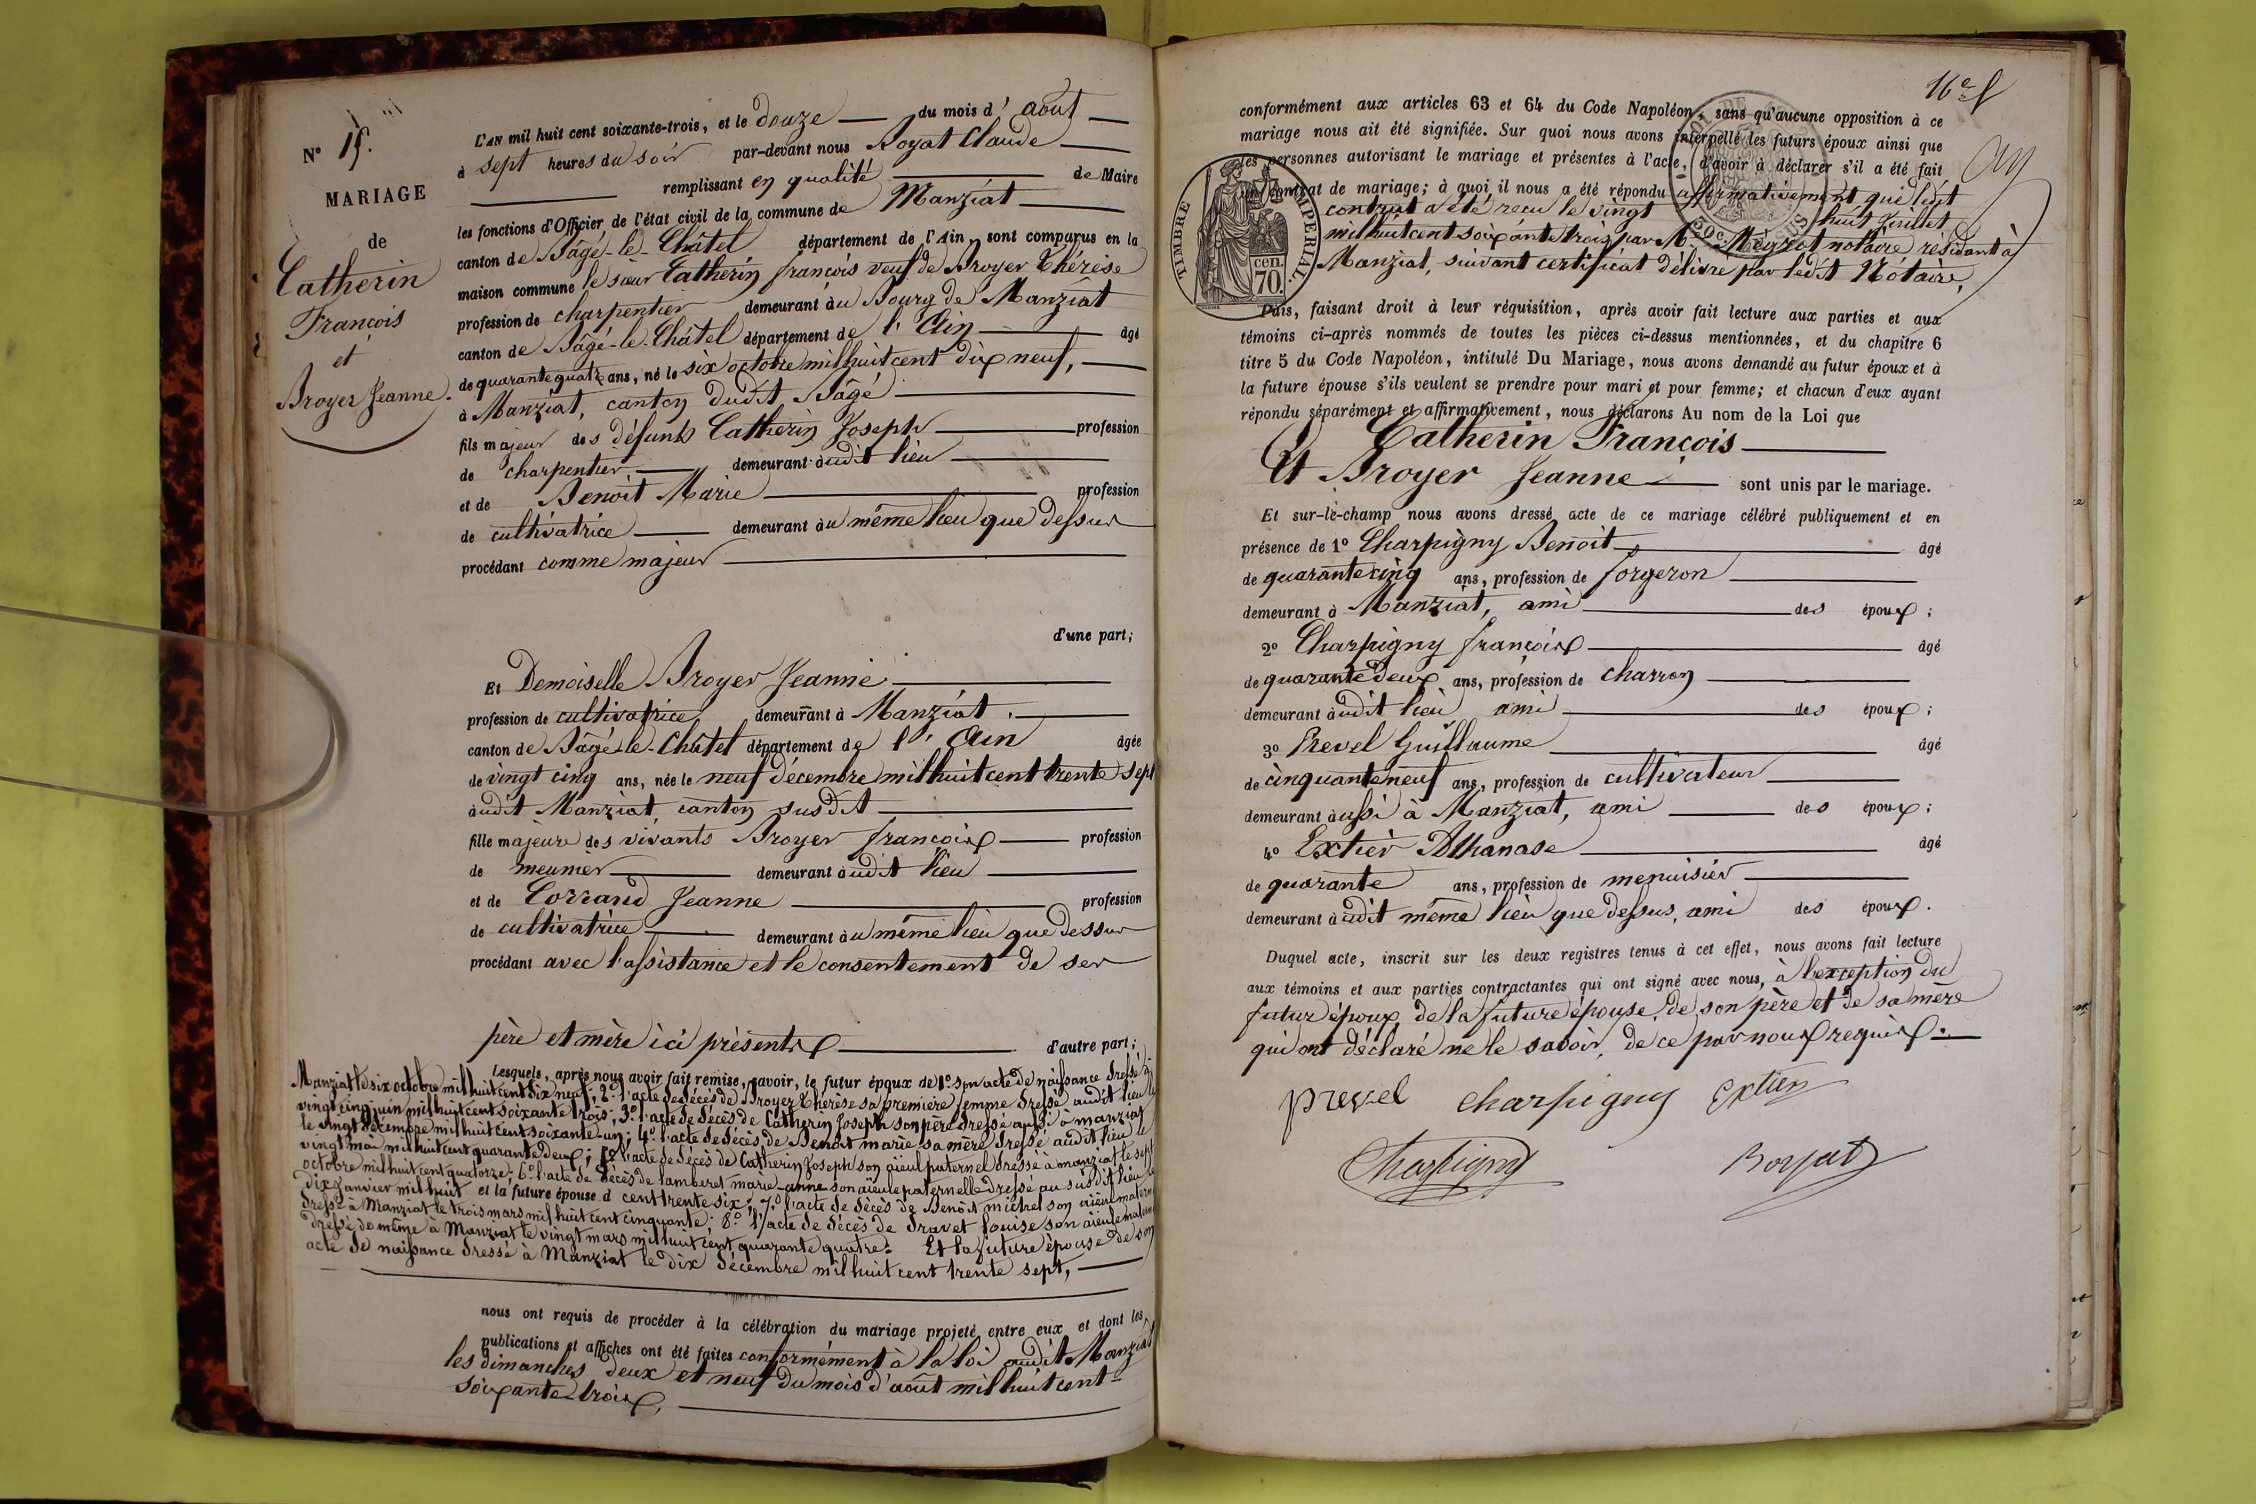 N° 15.
MARIAGE
de
Catherin
François
et
Broyer Jeanne.
L'AN mil huit cent soixante-trois, et le douze du mois d'août
à sept heures du soir par-devant nous Boyat Claude
remplissant en qualité de Maire
les fonctions d'Officier de l'état civil de la commune de Manziat
canton de Bâgé-le-Châtel département de l'Ain, sont comparus en la
maison commune le sieur Catherin françois veuf de Broyer Thérèse
profession de charpentier demeurant au Bourg de Manziat
canton de Bâgé-le-Châtel département de l'Ain âgé
de quarante quatre ans, né le six octobre mil huit cent dix neuf,
à Manziat, canton dudit Bâgé
fils majeur des défunts Catherin Joseph profession
de charpentier demeurant audit lieu
et de Benoit Marie profession
de cultivatrice demeurant au même lieu que dessus
procédant comme majeur
d'une part;
Et Demoiselle Broyer Jeanne
profession de cultivatrice demeurant à Manziat
canton de Bâgé-le-Châtel département de l'Ain âgée
de vingt cinq ans, née le neuf décembre mil huit cent trente sept
audit Manziat, canton susdit
fille majeure des vivants Broyer françois profession
de meunier demeurant audit lieu
et de Corrand Jeanne profession
de cultivatrice demeurant au même lieu que dessus
procédant avec l'assistance et le consentement de ses
père et mère ici présents d'autre part;
Lesquels, après nous avoir fait remise, savoir, le futur époux de 1° son acte de naissance dressé à
Manziat le six octobre mil huit cent dix neuf; 2° l'acte de décès de Broyer Thérèse sa première femme dressé audit lieu le
vingt cinq juin mil huit cent soixante trois; 3° l'acte de décès de Catherin Joseph son père dressé aussi à manziat
le vingt décembre mil huit cent soixante-un; 4° l'acte de décès de Benoit marie sa mère dressé audit lieu le
vingt mai mil huit cent quarante deux; 5° l'acte de décès de Catherin Joseph son aïeul paternel dressé à manziat le sept
octobre mil huit cent quatorze; 6° l'acte de décès de Lamberet marie-anne son aïeule paternelle dressé au susdit lieu le
dix janvier mil huit et la future épouse d cent trente six; 7° l'acte de décès de Benoit michel son aïeul maternel
dressé à Manziat le trois mars mil huit cent cinquante; 8° l'acte de décès de Dravet Louise son aïeule maternelle
dressé de même à Manziat le vingt mars mil huit cent quarante quatre. Et la future épouse de son
acte de naissance dressé à Manziat le dix décembre mil huit cent trente sept,
nous ont requis de procéder à la célébration du mariage projeté entre eux et dont les
publications et affiches ont été faites conformément à la loi audit Manziat
les dimanches deux et neuf du mois d'août mil huit cent
soixante trois,
16e f
conformément aux articles 63 et 64 du Code Napoléon, sans qu'aucune opposition à ce
mariage nous ait été signifiée. Sur quoi nous avons interpellé les futurs époux ainsi que
les personnes autorisant le mariage et présentes à l'acte, d'avoir à déclarer s'il a été fait
contrat de mariage; à quoi il nous a été répondu affirmativement que ledit
contrat a été reçu le vingt huit juillet
mil huit cent soixante trois par Me Meyrat notaire résidant à
Manziat, suivant certificat délivré par ledit Notaire,
TIMBRE IMPERIAL
cen.
70.
Puis, faisant droit à leur réquisition, après avoir fait lecture aux parties et aux
témoins ci-après nommés de toutes les pièces ci-dessus mentionnées, et du chapitre 6
titre 5 du Code Napoléon, intitulé Du Mariage, nous avons demandé au futur époux et à
la future épouse s'ils veulent se prendre pour mari et pour femme; et chacun d'eux ayant
répondu séparément et affirmativement, nous déclarons Au nom de la Loi que
Catherin François
Et Broyer Jeanne sont unis par le mariage.
Et sur-le-champ nous avons dressé acte de ce mariage célébré publiquement et en
présence de 1° Charpigny Benoit âgé
de quarante cinq ans, profession de forgeron
demeurant à Manziat, ami des époux;
2° Charpigny françois âgé
de quarante deux ans, profession de charron
demeurant audit lieu ami des époux;
3° Prevel Guillaume âgé
de cinquante neuf ans, profession de cultivateur
demeurant aussi à Manziat, ami des époux;
4° Extier Athanase âgé
de quarante ans, profession de menuisier
demeurant audit même lieu que dessus, ami des époux.
Duquel acte, inscrit sur les deux registres tenus à cet effet, nous avons fait lecture
aux témoins et aux parties contractantes qui ont signé avec nous, à l'exception du
futur époux, de la future épouse, de son père et de sa mère
qui ont déclaré ne le savoir, de ce par nous requis.
prevel charpigny Extier
Charpigny Boyat